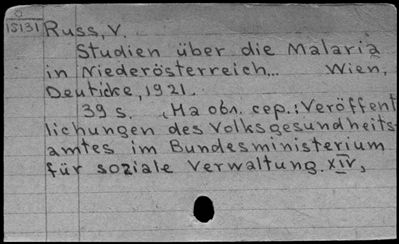 O
15131
Russ, V.
Studien über die Malaria
in Niederösterreich... Wien,
Deuticke, 1921.
39 s. (На обл. сер.: Veröffent
lichungen des Volksgesundheits-
amtes im Bundesministerium
für soziale Verwaltung. XIV,